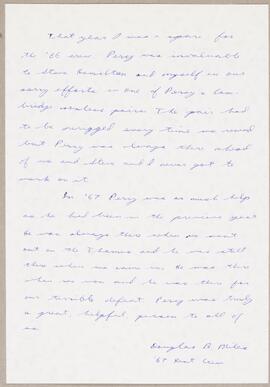 That year I was a spare for
the '66 crew. Percy was invaluable
to Steve Hamilton and myself in our
sorry efforts in one of Percy's
bridge coxless pairs. The pair had
to be rerigged every time we rowed
but Percy was always there ahead
of us and Steve and I never got to
work on it.
In '67 Percy was as much help
as he had been in the previous year.
He was always there when we went
out on the Thames and he was still
there when we came in. He was there
when we won and he was there for
our terrible defeat. Percy was truly
a great, helpful, person to all of
us.
Douglas B.
'67 Kent Crew